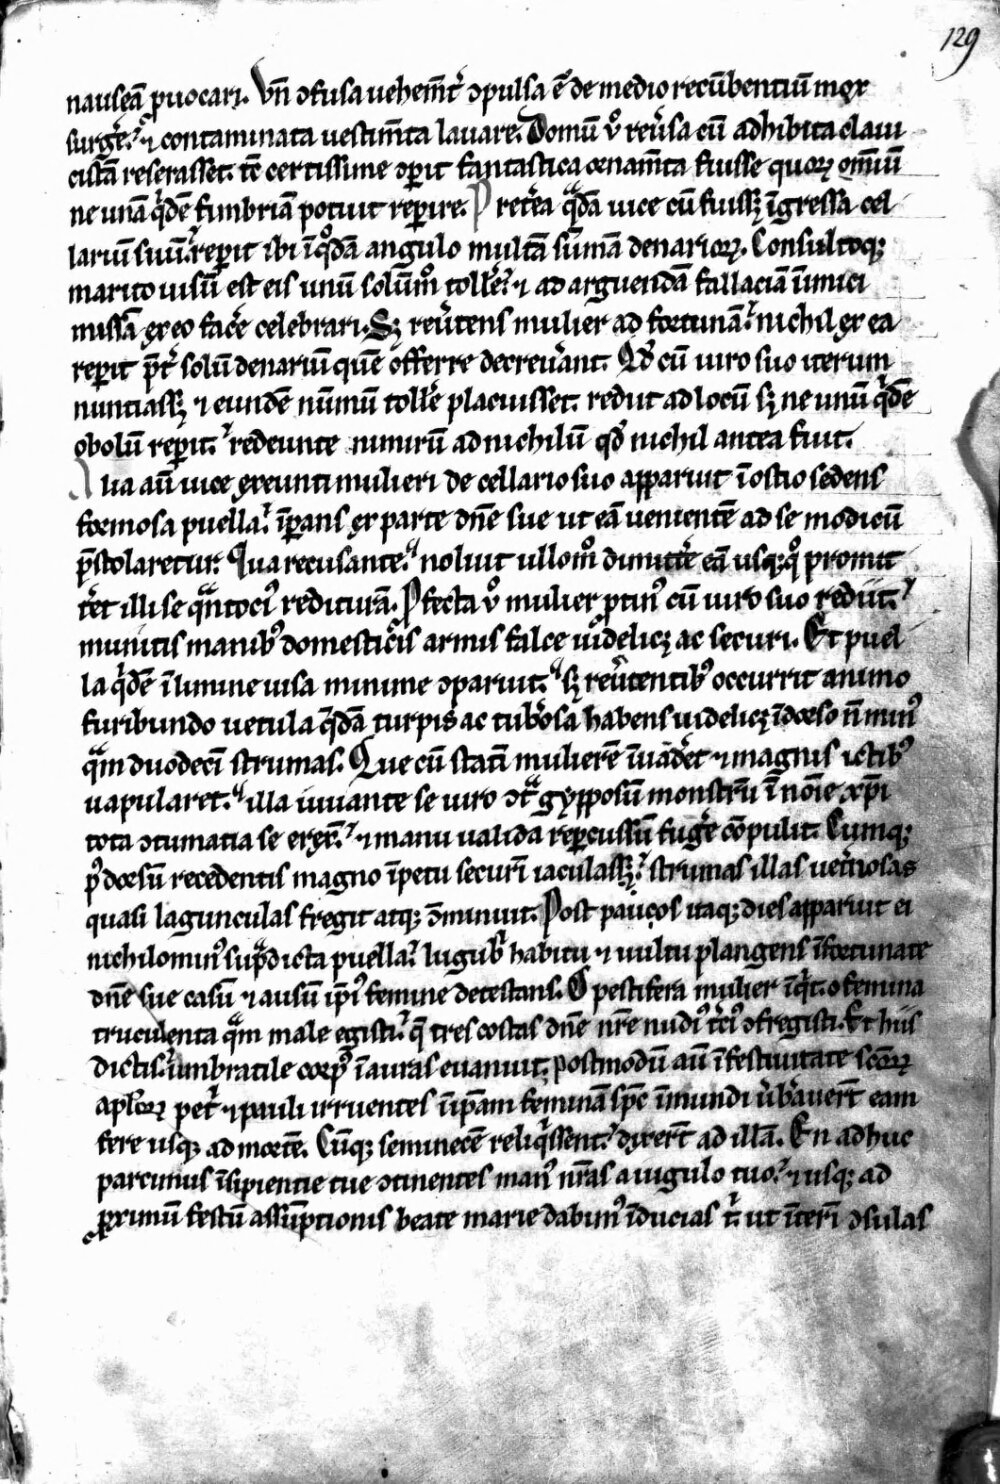 129
nauseā ꝓuocari. Vn̄ ↄfusa uehem̄t͛ ↄpulsa ē de medio recūbentiū mox
surge͛. ⁊ contaminata uestim̄ta lauare. Domū u͛o reu͛sa cū adhibita claui
cistā reserasset. tc̄ certissime ↄꝑit fantastica oenam̄ta fuisse quoꝝ om̄iū
ne unā qͥdē fimbriam potuit reꝑire. Pret͛ea qͣdā uice cū fuissꝫ īgressa cel
lariū suū reꝑit ibi ī qͦdā angulo multā sūmā denarioꝝ. Consultoqꝫ
marito uisū est eis unū solūmͦ toll͛e. ⁊ ad arguendā fallaciā inimici
missā ex eo fac͛e celebrari. Sꝫ reu͛tens mulier ad fortunā. nichil ex ea
reꝑit p̄t͛ solū denariū quē offerre decreu͛ant. Qd̄ cū uiro suo iterum
nuntiassꝫ ⁊ eundē nūmū toll͛e placuisset. rediit ad locū sꝫ ne unū qͥdē
obolū reꝑit. redeunte nimirū ad nichilū qd̄ nichil antea fuit.
Alia aū uice exeunti mulieri de cellario suo apparuit ī ostio sedens
formosa puella. īꝑans ex parte dn̄e sue ut eā uenientē ad se modicū
p̄stolaretur. Qua recusante. noluit ullomͦ dimitt͛e eā usqꝫ qͦ promit
t͛et illi se qͣntociꝰ rediturā. Ꝓfecta u͛o mulier ꝓtinꝰ cū uiro suo rediit.
munitis manibꝰ domesticis armis falce uidelicꝫ ac securi. Et puel
la qͥdē ī limine uisa minime ↄparuit. sꝫ reu͛tentibꝰ occurrit animo
furibundo uetula qͣdā turpis ac tub͛osa habens uidelicꝫ ī dorso n̄ minꝰ
qͣm duodecī strumas. Que cū statī mulierē īuad͛et ⁊ magnis ictibꝰ
uapularet. illa iuuante se uiro ↄtͣ gypposū monstrū ī noīe xp̄i
tota ↄtumatia se erex͛. ⁊ manu ualida reꝑcussū fug͛e cōpulit. Cumqꝫ
pꝰ dorsū recedentis magno īpetu securī iaculassꝫ. strumas illas uen͛osas
quasi lagunculas fregit atqꝫ ↄminuit. Post paucos itaqꝫ dies apparuit ei
nichilominꝰ supͣdicta puella. lugubͥ habitu ⁊ uultu plangens īfortunate
dn̄e sue casū ⁊ ausū ip̄iꝰ femine detestans. O pestifera mulier īqͥt. o femina
truculenta qͣm male egisti. q̄ tres costas dn̄e nr̄e nudiꝰ t͛ciꝰ ↄfregisti. Et hiis
dictis. umbratile corpꝰ ī auras euanuit. Postmodū aū ī festiuitate sc̄oꝝ
apl̄oꝝ pet͛ ⁊ pauli irruentes ī ip̄am feminā sp̄c īmundi u͛b͛auer̄t eam
fere usqꝫ ad mortē. Cūqꝫ seminecē reliqͥssent. dixer̄t ad illā. En adhuc
parcimus īsipientie tue ↄtinentes manꝰ nr̄as a iugulo tuo. ⁊ usqꝫ ad
ꝓximū festū assūptionis beate marie dabimꝰ īducias tͥ. ut īterī ↄsulas